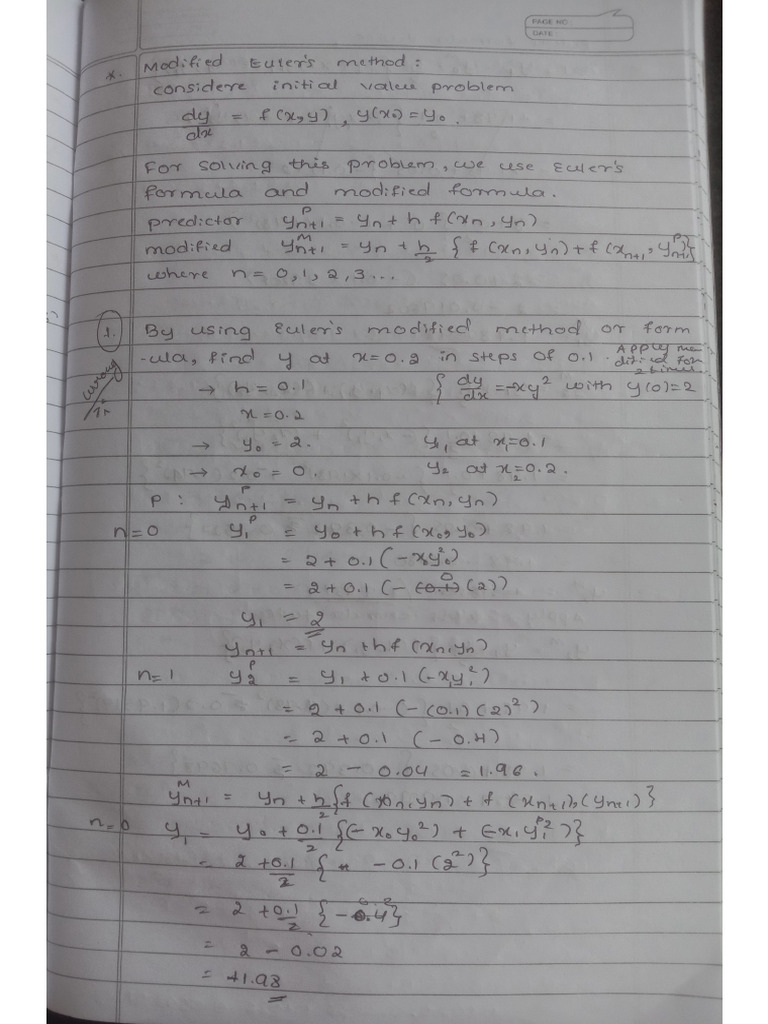 PAGE NO.
DATE:
*. Modified Euler's method:
considere initial value problem
dy/dx = f(x,y), y(x₀) = y₀.
For solving this problem, we use Euler's
formula and modified formula.
predictor yᴾₙ₊₁ = yₙ + h f(xₙ, yₙ)
modified yᴹₙ₊₁ = yₙ + h/2 { f(xₙ, yₙ) + f(xₙ₊₁, yᴾₙ₊₁)}
where n = 0, 1, 2, 3...
1. By using Euler's modified method or form
-ula, find y at x=0.2 in steps of 0.1. Apply mo
dified for
2 times
wrong
→ h = 0.1 { dy/dx = -xy² with y(0)=2
x = 0.2
→ y₀ = 2. y₁ at x₁=0.1
→ x₀ = 0. y₂ at x₂=0.2.
P: yᴾₙ₊₁ = yₙ + h f(xₙ, yₙ)
n=0 y₁ᴾ = y₀ + h f(x₀, y₀)
= 2 + 0.1 (-x₀y₀²)
= 2 + 0.1 (- 0 (2))
y₁ = 2
yₙ₊₁ = yₙ + h f(xₙ, yₙ)
n=1 y₂ᴾ = y₁ + 0.1 (-x₁y₁²)
= 2 + 0.1 (-(0.1)(2)²)
= 2 + 0.1 (-0.4)
= 2 - 0.04 = 1.96.
yᴹₙ₊₁ = yₙ + h/2 {f(xₙ, yₙ) + f(xₙ₊₁), (yₙ₊₁)}
n=0 y₁ = y₀ + 0.1/2 {(-x₀y₀²) + (-x₁y₁ᴾ²)}
= 2 + 0.1/2 { - 0.1 (2²)}
= 2 + 0.1/2 {-0.4}
= 2 - 0.02
= 1.98